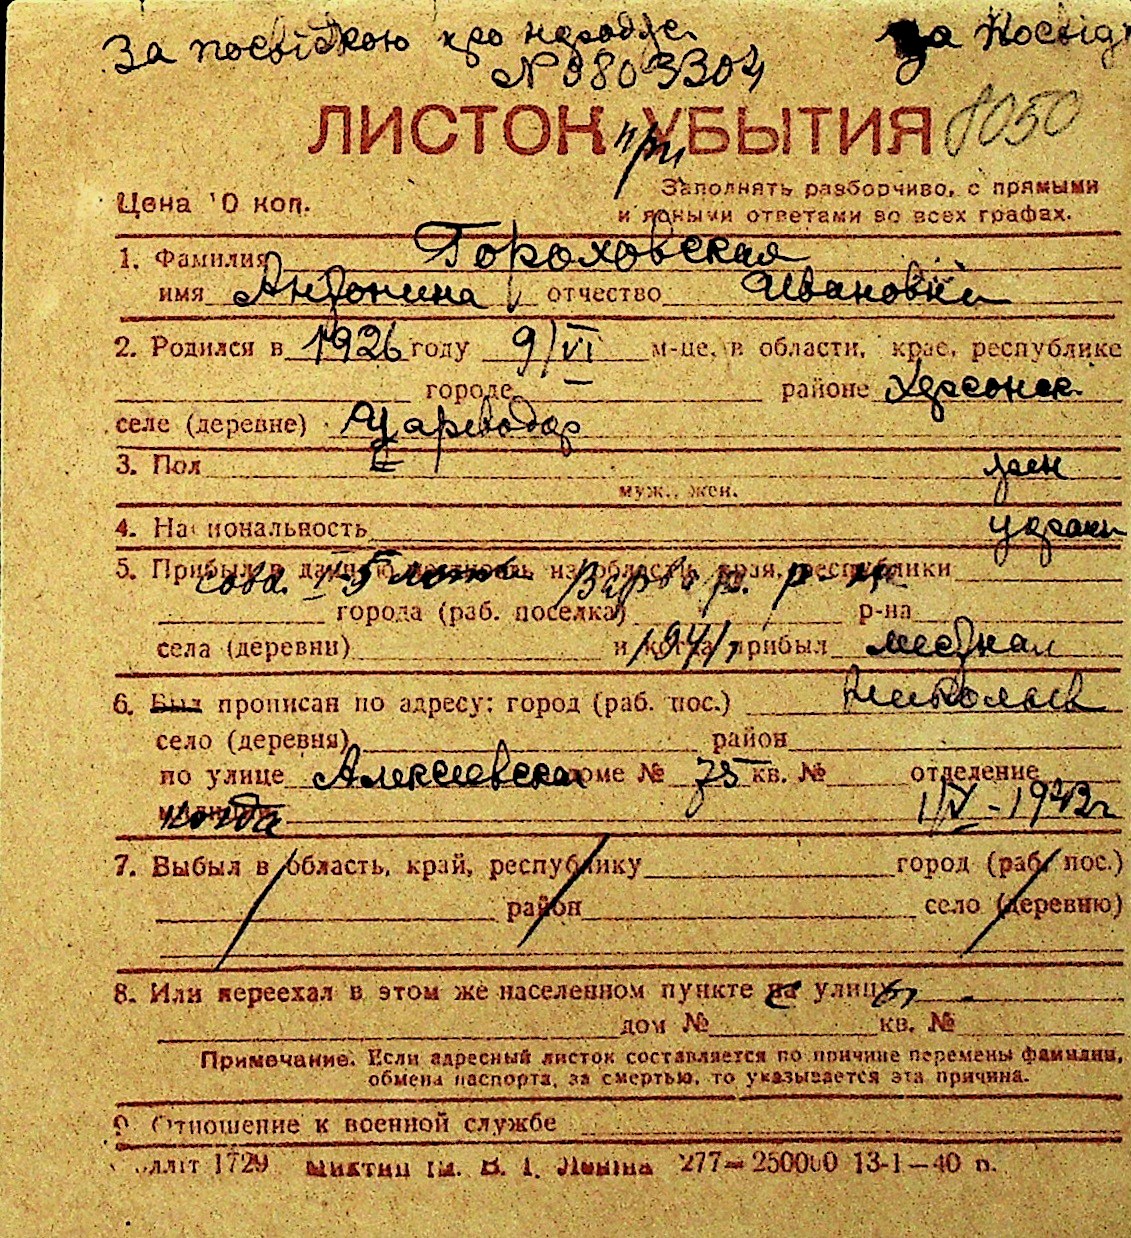 За посвідкою про народж.
за посвід
№ 0803304
ЛИСТОК при УБЫТИЯ 8050
Цена 10 коп.
Заполнять разборчиво, с прямыми
и ясными ответами во всех графах.
1. Фамилия Гороховская
имя Антонина отчество Ивановна
2. Родился в 1926 году 9/VI м-це, в области, крае, республике
городе районе Херсонск.
селе (деревне) Цареводар
3. Пол жен
муж., жен.
4. Национальность украин
5. Прибыл в данную местность из области, края, республики
р-н
города (раб. поселка) р-на
села (деревни) и когда прибыл 1941 г местная
6. Был прописан по адресу: город (раб. пос.) Николаев
село (деревня) район
по улице Алексеевская доме № 75 кв. № отделение
милиции когда 1/IV-1942г
7. Выбыл в область, край, республику город (раб. пос.)
район село (деревню)
8. Или переехал в этом же населенном пункте на улицу
дом № кв. №
Примечание. Если адресный листок составляется по причине перемены фамилии,
обмена паспорта, за смертью, то указывается эта причина.
9. Отношение к военной службе
1729 Ленина 277—250000 13-1—40 п.